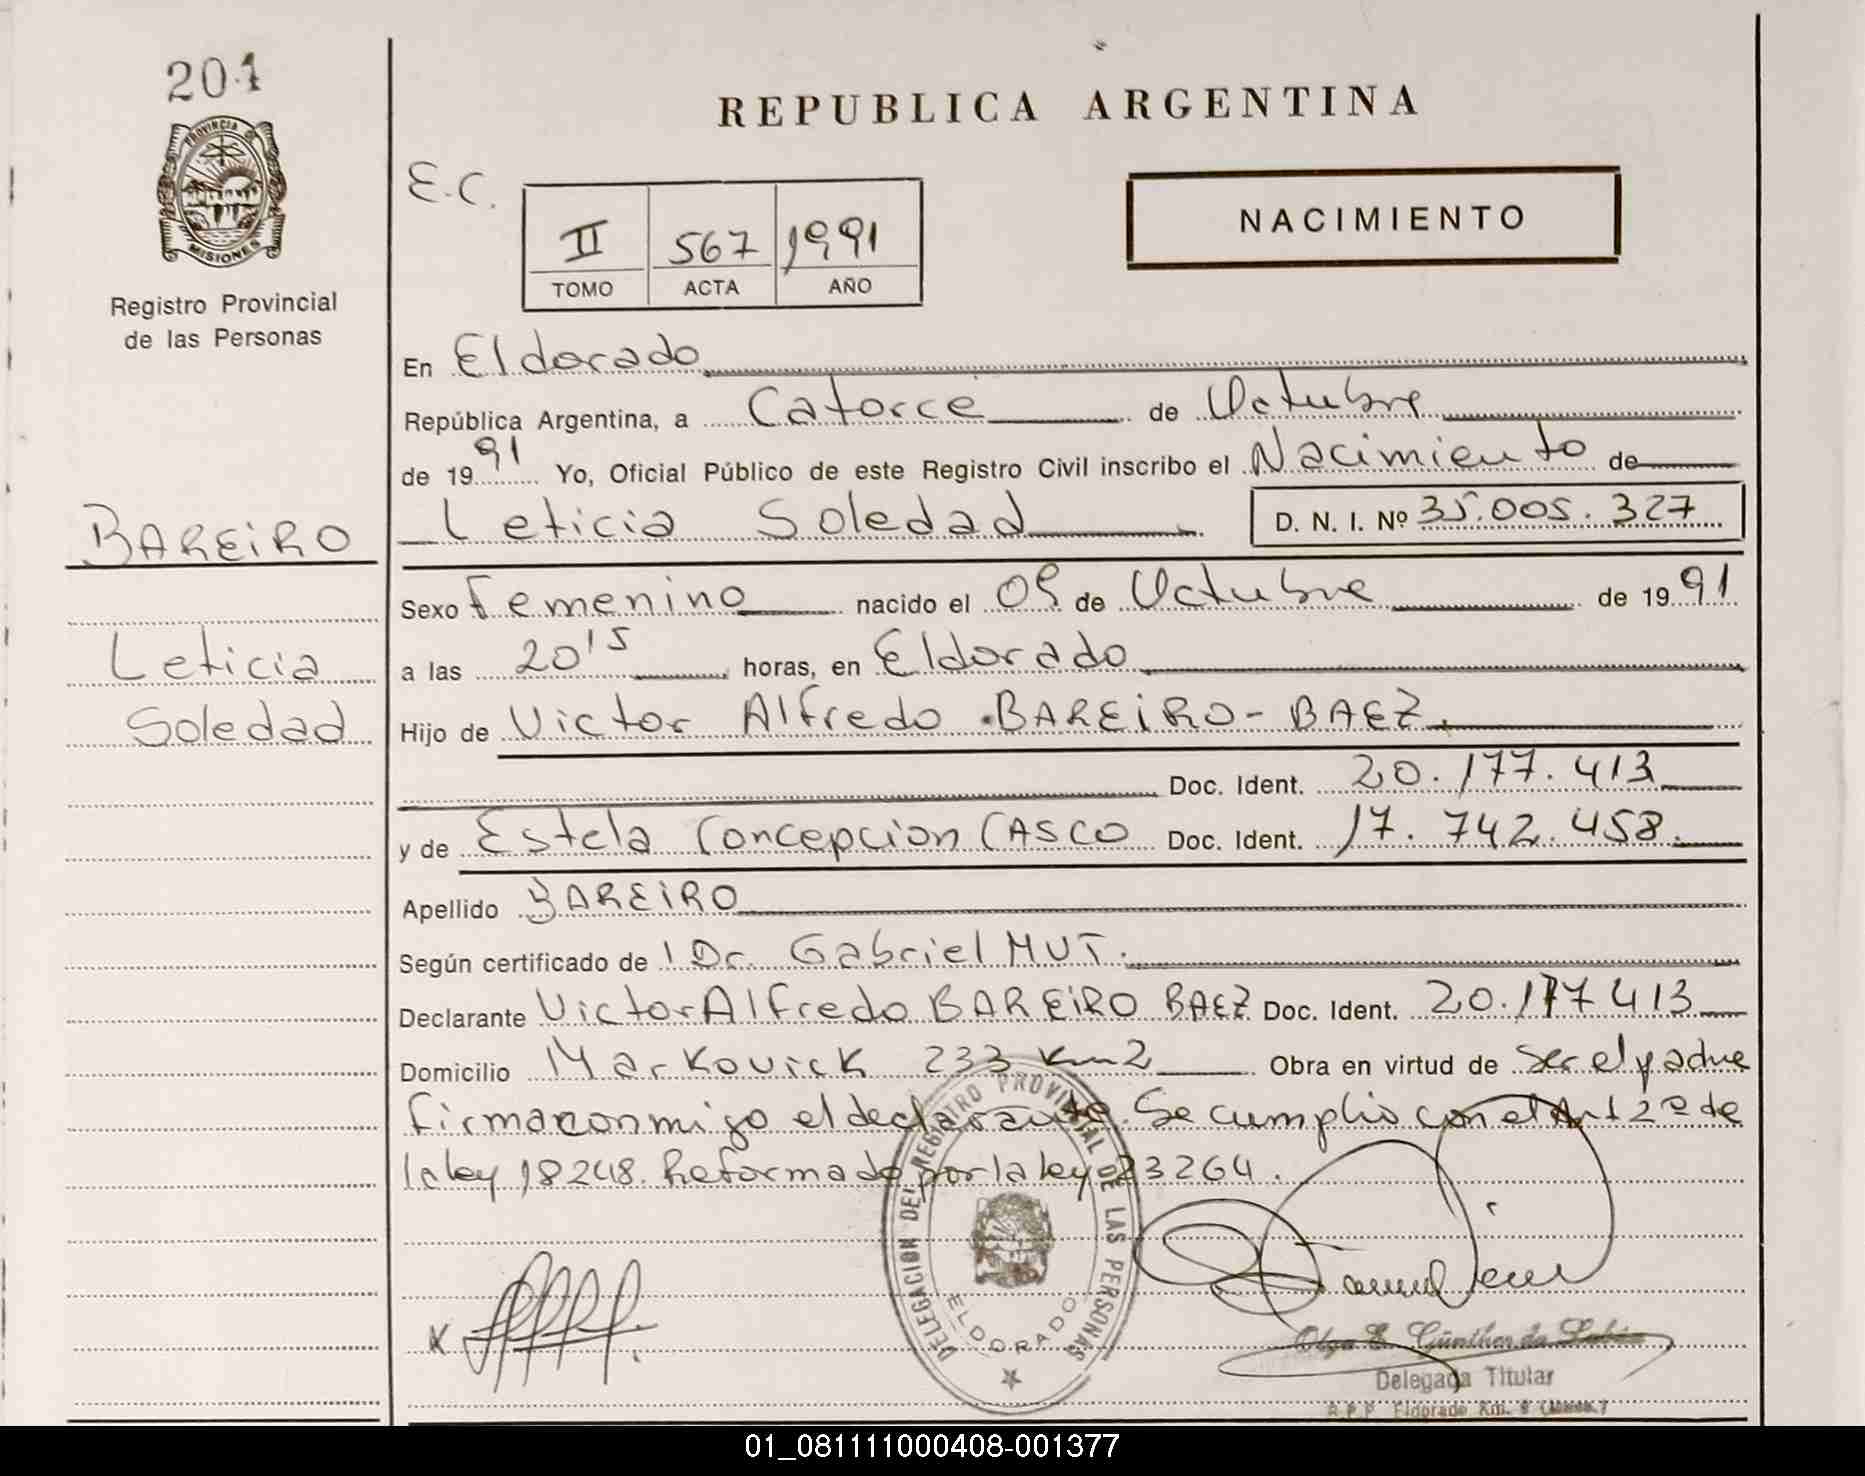 201
PROVINCIA
MISIONES
Registro Provincial
de las Personas
BAREIRO
Leticia
Soledad
REPUBLICA ARGENTINA
E.C.
II 567 1991
TOMO ACTA AÑO
NACIMIENTO
En Eldorado
República Argentina, a Catorce de Octubre
de 1991 Yo, Oficial Público de este Registro Civil inscribo el Nacimiento de
Leticia Soledad D. N. I. Nº 35.005.327
Sexo Femenino nacido el 09 de Octubre de 1991
a las 20'15 horas, en Eldorado
Hijo de Victor Alfredo BAREIRO-BAEZ
Doc. Ident. 20.177.413
y de Estela Concepcion CASCO Doc. Ident. 17.742.458.
Apellido BAREIRO
Según certificado de Dr. Gabriel MUT.
Declarante Victor Alfredo BAREIRO BAEZ Doc. Ident. 20.177413
Domicilio Markovick 233 Km2 Obra en virtud de ser el padre
firma conmigo el declarante. Se cumplio con el Art 2º de
la ley 18248. Reformado por la ley 23264.
DELEGACION DEL REGISTRO PROVINCIAL DE LAS PERSONAS
ELDORADO
Olga E. Günther de
Delegada Titular
R.P.P. Eldorado Km. 9
01_081111000408-001377